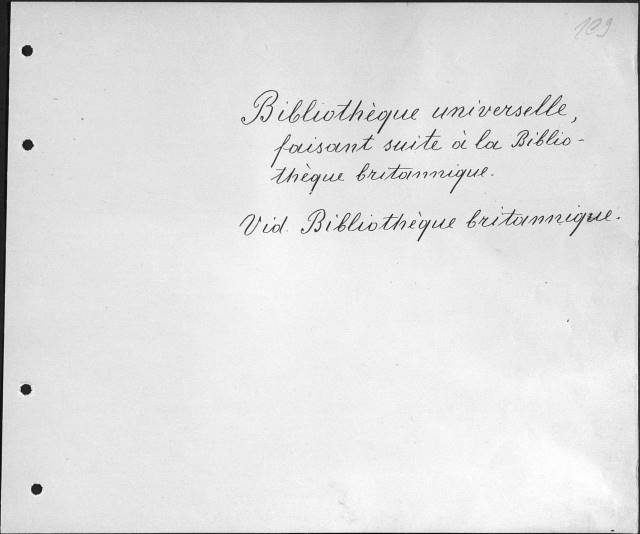 109
Bibliothèque universelle,
faisant suite à la Biblio-
thèque britannique.
Vid. Bibliothèque britannique.